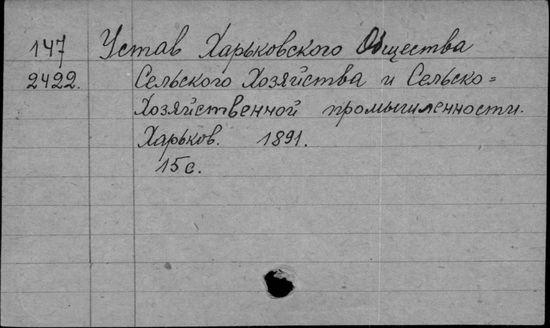 147 Устав Харьковского Общества
2422. Сельского Хозяйства и Сельско=
Хозяйственной промышленности.
Харьков. 1891.
15 с.